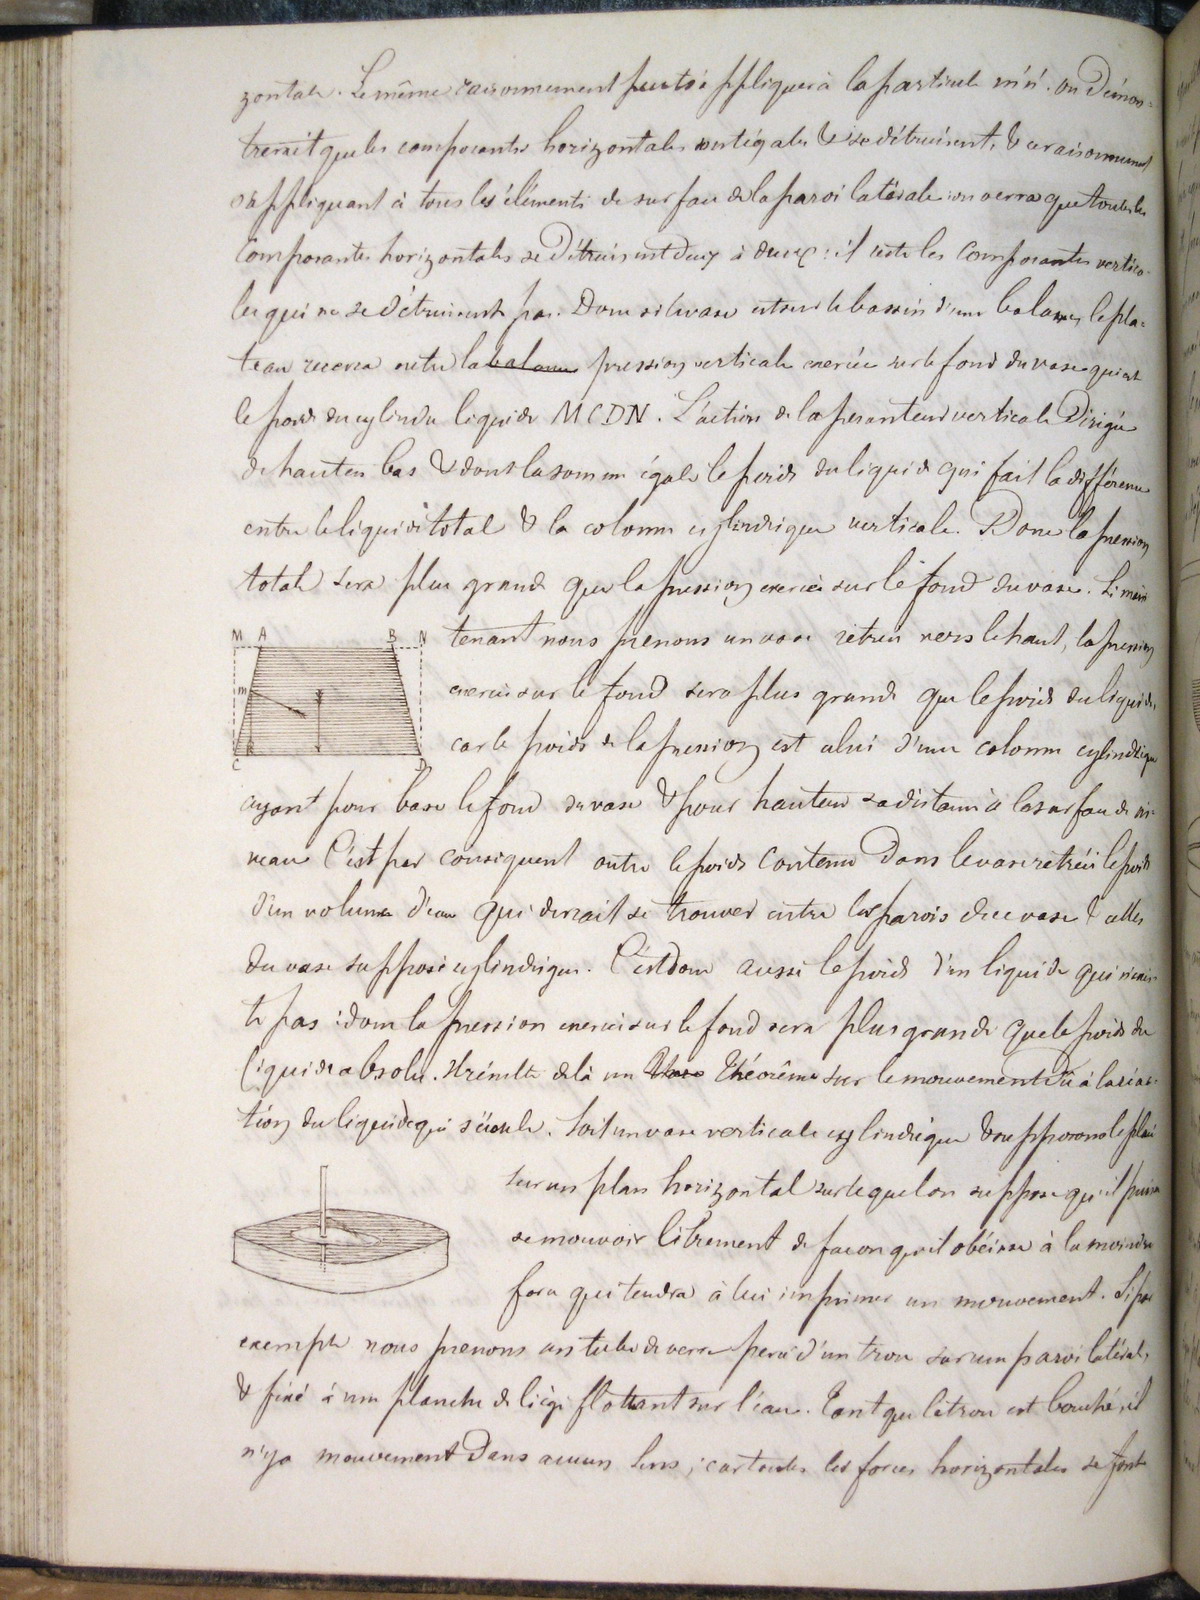 zontale. Le même raisonnement peut s'appliquer à la particule m'n'. on démon-
trerait que les composantes horizontales sont égales & se détruisent, & ce raisonnement
s'appliquant à tous les éléments de surface de la paroi latérale on verra que toutes les
composantes horizontales se détruisent deux à deux: il reste les composantes vertica-
les qui ne se détruisent pas. Donc si le vase est sur le bassin d'une balance, le pla-
teau recevra outre la balance pression verticale exercée sur le fond du vase qui est
le poids du cylindre liquide MCDN. L'action de la pesanteur verticale dirigée
de haut en bas & dont la somme égale le poids du liquide qui fait la différence
entre le liquide total & la colonne cylindrique verticale. Donc la pression
totale sera plus grande que la pression exercée sur le fond du vase. Si main
M A B N
tenant nous prenons un vase rétréci vers le haut, la pression
m
exercée sur le fond sera plus grande que le poids du liquide,
car le poids de la pression est celui d'une colonne cylindrique
C D
ayant pour base le fond du vase & pour hauteur sa distance à la surface de ni-
veau C'est par conséquent outre le poids contenu dans le vase rétréci le poids
d'un volume d'eau qui devrait se trouver entre les parois du vase & celles
du vase supposé cylindrique. C'est donc aussi le poids d'un liquide qui n'exis-
te pas: donc la pression exercée sur le fond sera plus grande que le poids du
liquide absolu. Il résulte de là un Théorême sur le mouvement dû à la réac-
tion du liquide qui s'écoule. Soit un vase verticale cylindrique & supposons le placé
sur un plan horizontal sur lequel on suppose qu'il puisse
se mouvoir librement de façon qu'il obéisse à la moindre
force qui tendra à lui imprimer un mouvement. Si par
exemple nous prenons un tube de verre percé d'un trou sur une paroi latérale,
& fixé à une planche de liège flottant sur l'eau. Tant que le trou est bouché, il
n'y a mouvement dans aucun sens; car toutes les forces horizontales se font